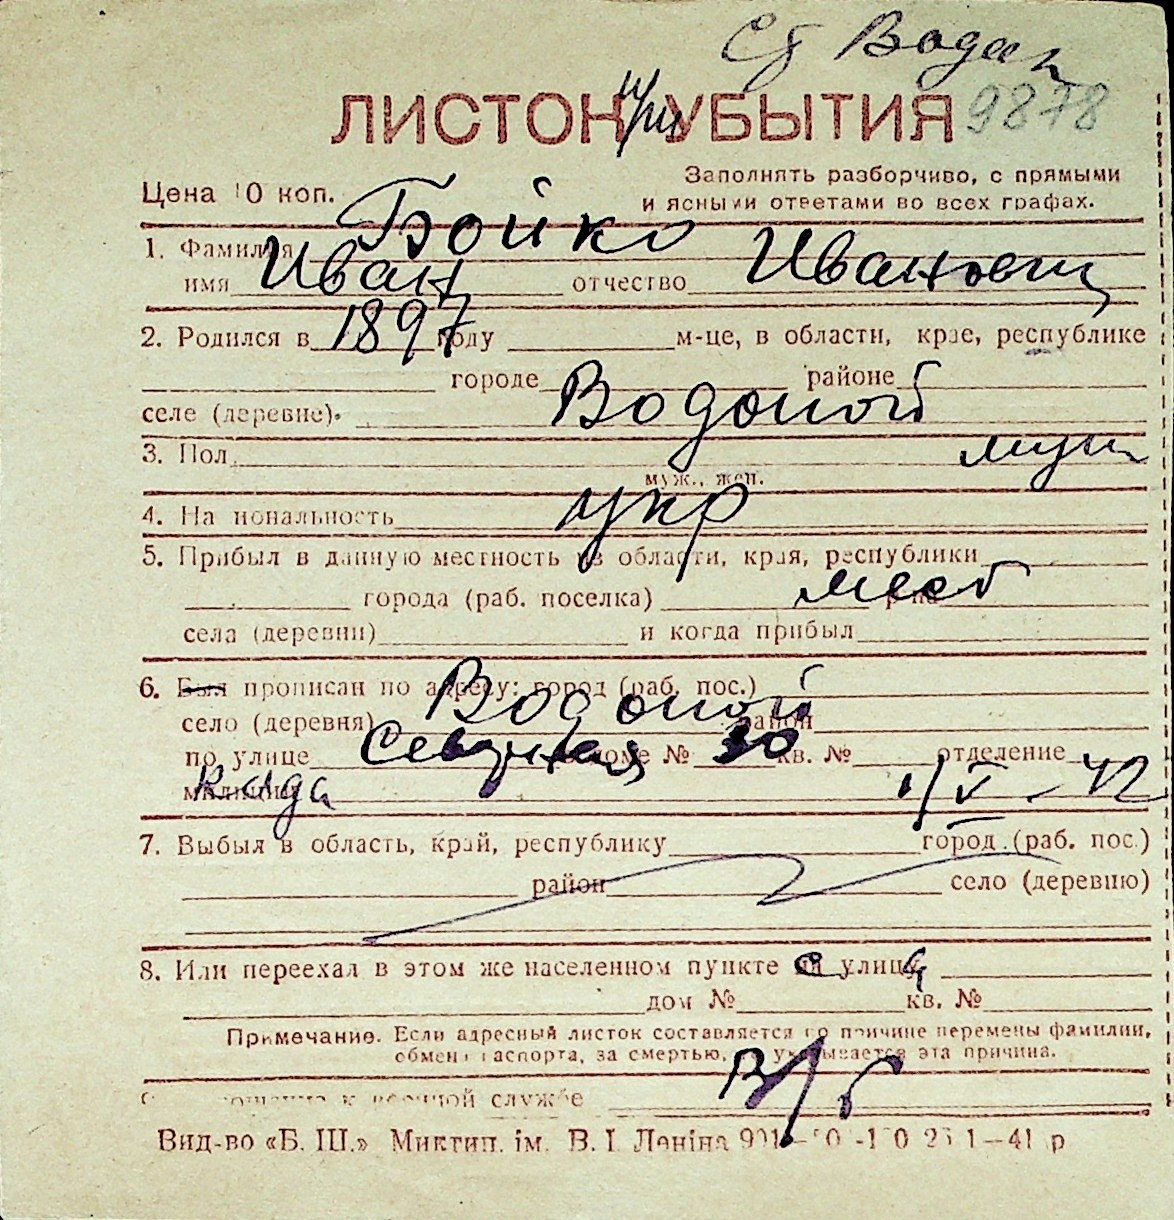 Ст Водан
ЛИСТОК УБЫТИЯ 9878
при
Заполнять разборчиво, с прямыми
Цена 10 коп. и ясными ответами во всех графах.
1. Фамилия Бойко
имя Иван отчество Иванович
2. Родился в 1897 году м-це, в области, крае, республике
городе районе
селе (деревне). Водопой
3. Пол муж
муж., жен.
4. Национальность укр
5. Прибыл в данную местность из области, края, республики
города (раб. поселка) р-на мест
села (деревни) и когда прибыл
6. Был прописан по адресу: город (раб. пос.)
село (деревня) Водопой район
по улице доме № 30 кв. № отделение
милиции когда 1/V - 42
7. Выбыл в область, край, республику город (раб. пос.)
район село (деревню)
8. Или переехал в этом же населенном пункте на улицу
дом № кв. №
Примечание. Если адресный листок составляется по причине перемены фамилии,
обмена паспорта, за смертью, то указывается эта причина.
Отношение к военной службе В/б
Вид-во «Б. Ш.» Миктип. ім. В. І. Леніна